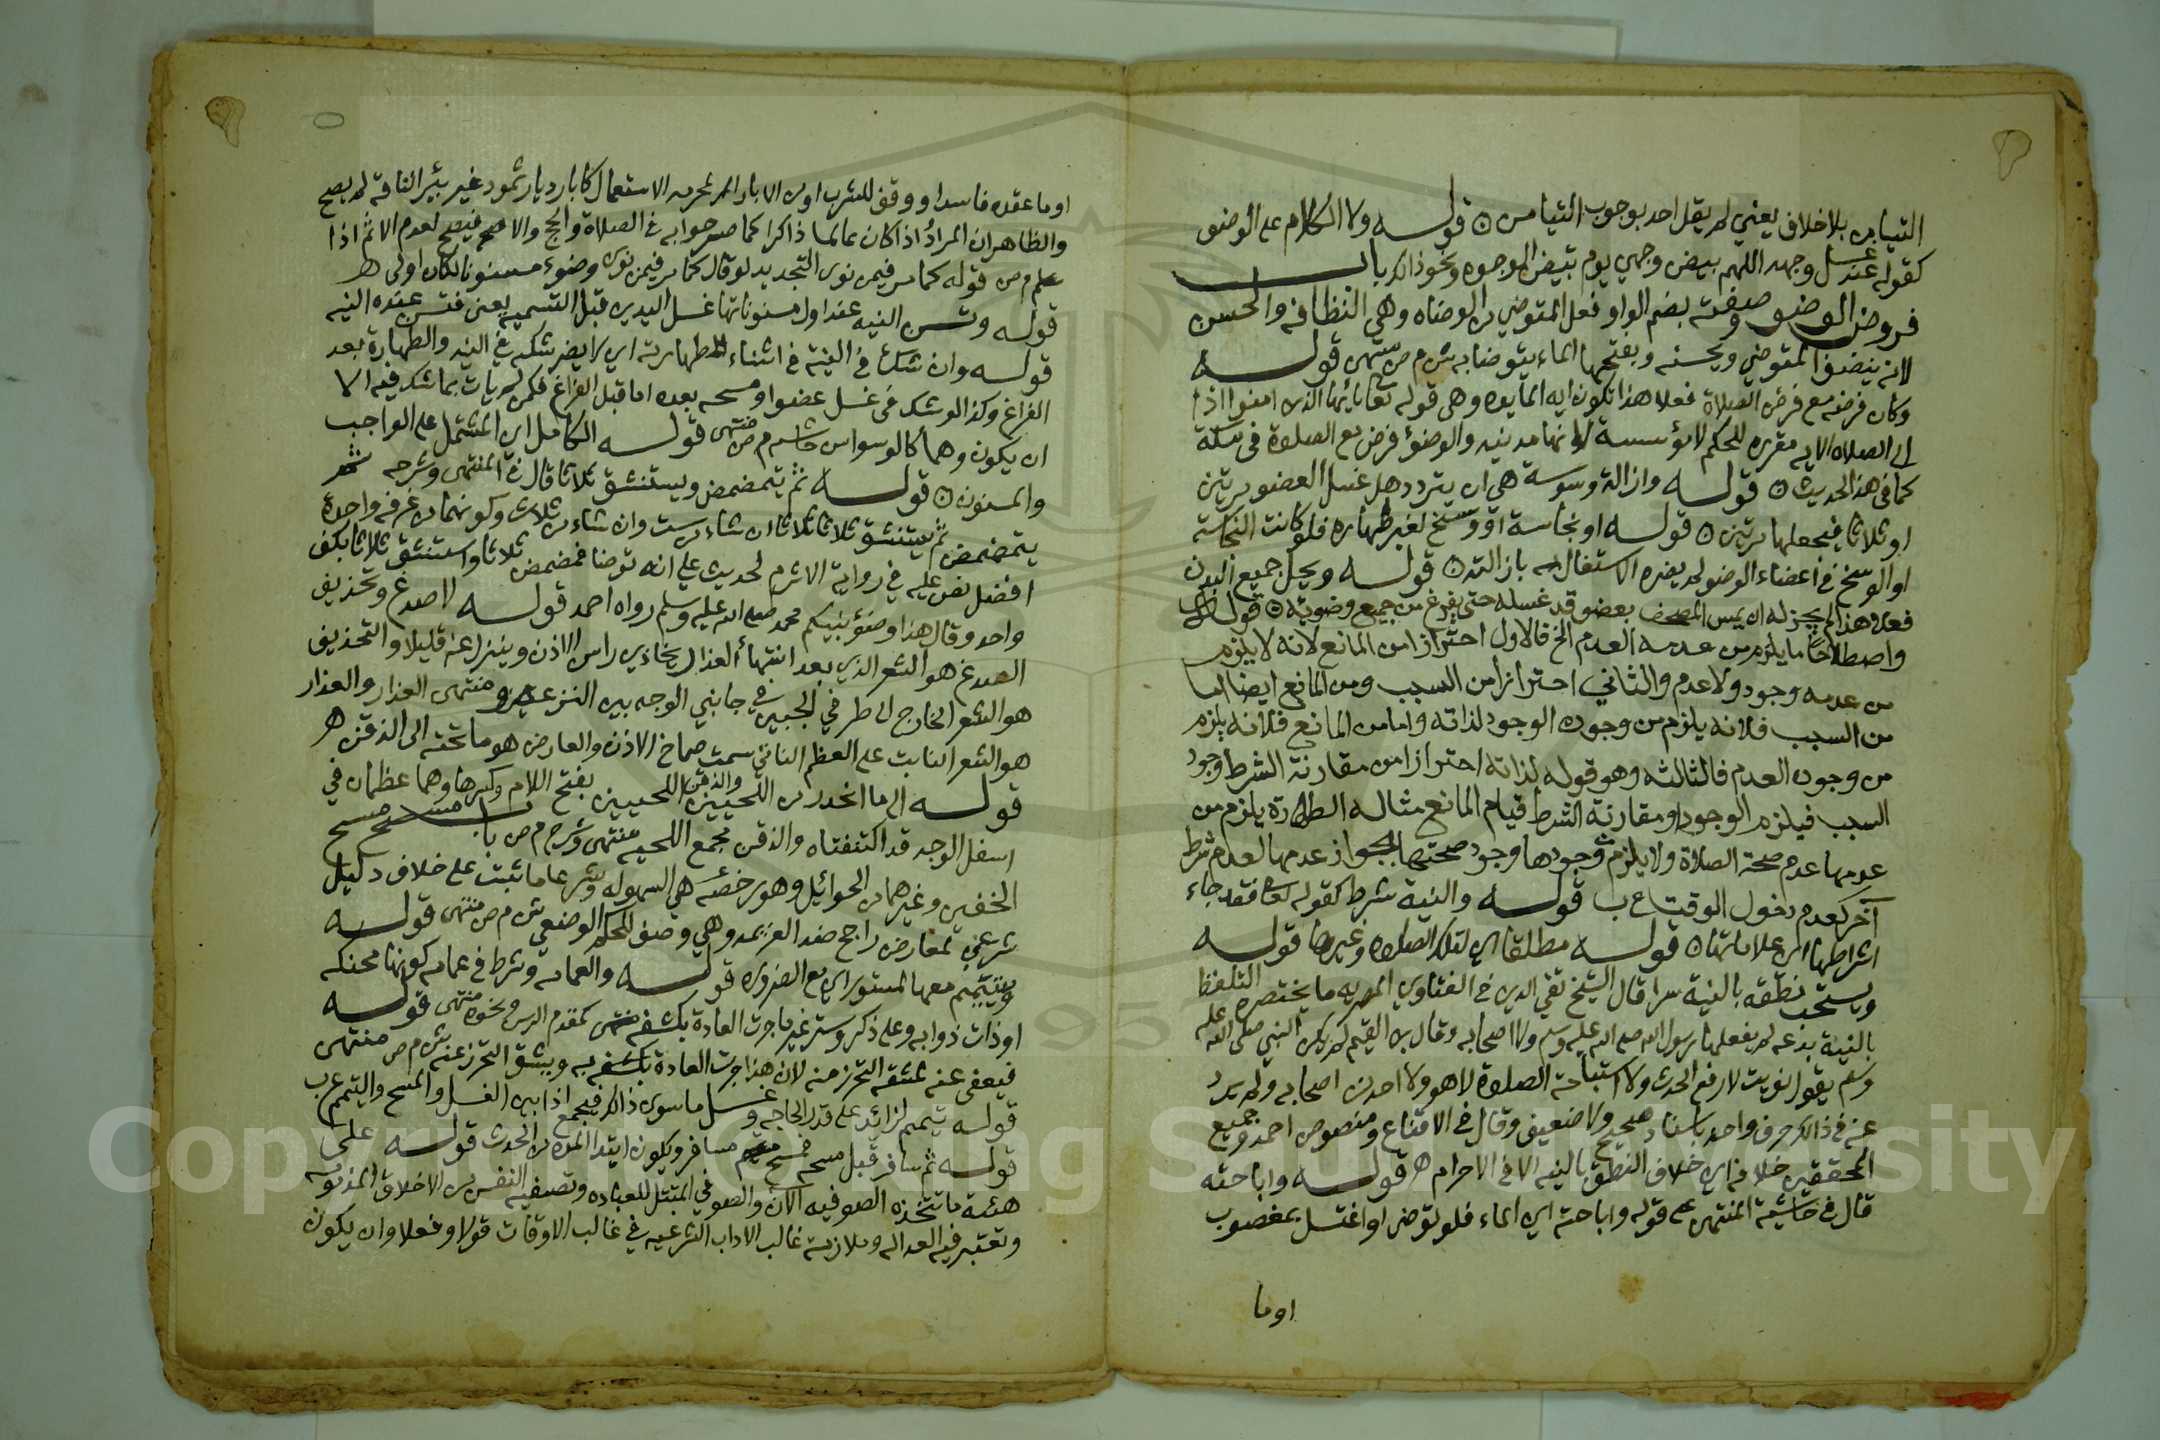 التيامن بلا خلاف يعني لم يقل احد بوجوب التيامن ٥ قوله ولا الكلام على الوضو
كقوله عند غسل وجهه اللهم بيض وجهي يوم تبيض الوجوه ونحو ذالك باب
فروض الوضو وصفته بضم الواو فعل المتوضي من الوضاه وهي النظافه والحسن
لانه ينضف المتوضي ويحسنه وبفتحها الماء يتوضا به ش م ص منتهى قوله
وكان فرضه مع فرض الصلاة فعلا هذا تكون ايه المايده وهي قوله تعا يايها الذين امنوا اذا
الى الصلاه الايه مقرره للحكم لا مؤسسة لانها مدينيه والوضؤ فرض مع الصلوة في مكة
كما في هذا الحديث ٥ قوله وازالة وسوسة هي ان يتردد هل غسل العضو مرتين
او ثلاثا فيجعلها مرتين ٥ قوله او نجاسة او وسخ لغير طهاره فلو كانت النجاسة
او الوسخ في اعضاء الوضو لم يضره الاشتغال بازالته ٥ قوله ويحل جميع البدن
فعلا هذا لا يجزله ان يمس المصحف بعضو قد غسله حتى يفرغ من جميع وضويه ٥ قوله
واصطلاحا ما يلزم من عدمه العدم الخ فالاول احترازا من المانع لانه لا يلزم
من عدمه وجود ولا عدم والثاني احترازا من السبب ومن المانع ايضا اما
من السبب فلانه يلزم من وجوده الوجود لذاته واما من المانع فلانه يلزم
من وجوده العدم فالثالثه وهو قوله لذاته احترازا من مقارنة الشرط وجود
السبب فيلزم الوجود او مقارنة الشرط قيام المانع مثاله الطهارة يلزم من
عدمها عدم صحة الصلاة ولا يلزم من وجودها وجود صحتها لجواز عدمها لعدم شرط
آخر كعدم دخول الوقت ع ب قوله والنية شرط كقوله تعا فقد جاء
اشراطها اي علاماتها ٥ قوله مطلقا اي لتلك الصلوه وغيرها قوله
ويستحب نطقه بالنية سرا قال الشيخ تقي الدين في الفتاوي المصريه ما يختصره التلفظ
بالنية بدعه لم يفعلها رسول الله صلى الله عليه وسلم ولا اصحابه وقال بن القيم لم يكن النبي صلى الله عليه
وسلم يقول نويت لا رفع الحدث ولا استباحة الصلوة لا هو ولا احد من اصحابه ولم يرد
عنه في ذالك حرف واحد باسناد صحيح ولا ضعيف وقال في الاقناع ومنصوص احمد وجميع
المحققين خلافه اي خلاف النطق بالنيه الا في الاحرام هـ قوله واباحته
قال في حاشية المنتهى على قوله واباحته اي الماء فلو توضا او اغتسل بمغصوب
اوما
اوما عقده فاسدا ووقف للشرب اومن الابار المحرمه الاستعمال كابار ديار ثمود غير بئر الناقه لم يصح
والظاهر ان المراد اذا كان عالما ذاكرا كما صرحوا به في الصلاة والحج والا فيصح لعدم الاثم اذا
علم م ص قوله كما مر فيمن نوى التجديد لو قال كما مر فيمن نوى وضوء مسنونا لكان اولى هـ
قوله وتسن النيه عند اول مسنوناتها غسل اليدين قبل التسميه يعني فتسن عنده النيه
قوله وان شك في النية في اثناء الطهارته اي لا يضر شكه في النيه والطهارة بعد
الفراغ وكذا لو شك في غسل عضو او مسحه بعده اما قبل الفراغ فكمن لم يات بما شك فيه الا
ان يكون وهما كالوسواس حاشيه م ص منتهى قوله الكامل اي المشتمل على الواجب
والمسنون ٥ قوله ثم يتمضمض ويستنشق ثلاثا قال في المنتهى وشرحه ثم
يتمضمض ثم يستنشق ثلاثا ثلاثا ان شاء من ست وان شاء من ثلاث وكونهما من غرفه واحدة
افضل نص عليه في رواية الاثرم لحديث علي انه توضا فمضمض ثلاثا واستنشق ثلاثا بكف
واحد وقال هذا وضؤ نبيكم محمد صلى الله عليه وسلم رواه احمد قوله لا صدغ وتحذيف
الصدغ هو الشعر الذي بعد انتهاء العذار يحاذي راس الاذن وينزل عنه قليلا والتحذيف
هو الشعر الخارج الى طرفي الجبين في جانبي الوجه بين النزعه ومنتهى العذار والعذار
هو الشعر النابت على العظم الناتي سمت صماخ الاذن والعارض هو ما تحته الى الذقن هـ
قوله الى ما انحدر من اللحيين والذقن اللحيين بفتح اللام وكسرها وهما عظمان في
اسفل الوجه قد اكتنفتاه والذقن مجمع اللحيه منتهى وشرح م ص باب مسح
الخفين وغيرهما من الحوائل وهو رخصه هي السهوله وشرعا ما ثبت على خلاف دليل
شرعي لمعارض راجح ضد العزيمه وهي وصف للحكم الوضعي ش م ص منتهى قوله
ويتيمم معها لمستور اي مع الضروره قوله والعمامه وشرط في عمامه كونها محنكه
او ذات ذوابه وعلى ذكر وستر غير ما جرت العادة بكشفه كمقدم الرس ونحوه منتهى قوله
فيعفى عنه لمشقه التحرز منه لان هذا جرت العادة بكشفه به ويشق التحرز عنه ش م ص منتهى
قوله يتيمم لزائد على قدر الحاجه وغسل ما سوى ذالك فيجمع اذا بين الغسل والمسح والتيمم ع ب
قوله ثم سافر قبل مسحه فمسح مسافر ويكون ابتدا المده من الحدث قوله على
هئية ما تتخذه الصوفيه الآن والصوفي المتبتل للعباده وتصفية النفس من الاخلاق المذمومه
وتعتبر فيه العداله وملازمة غالب الاداب الشرعيه في غالب الاوقات قولا وفعلا وان يكون
Copyright © King Saud University